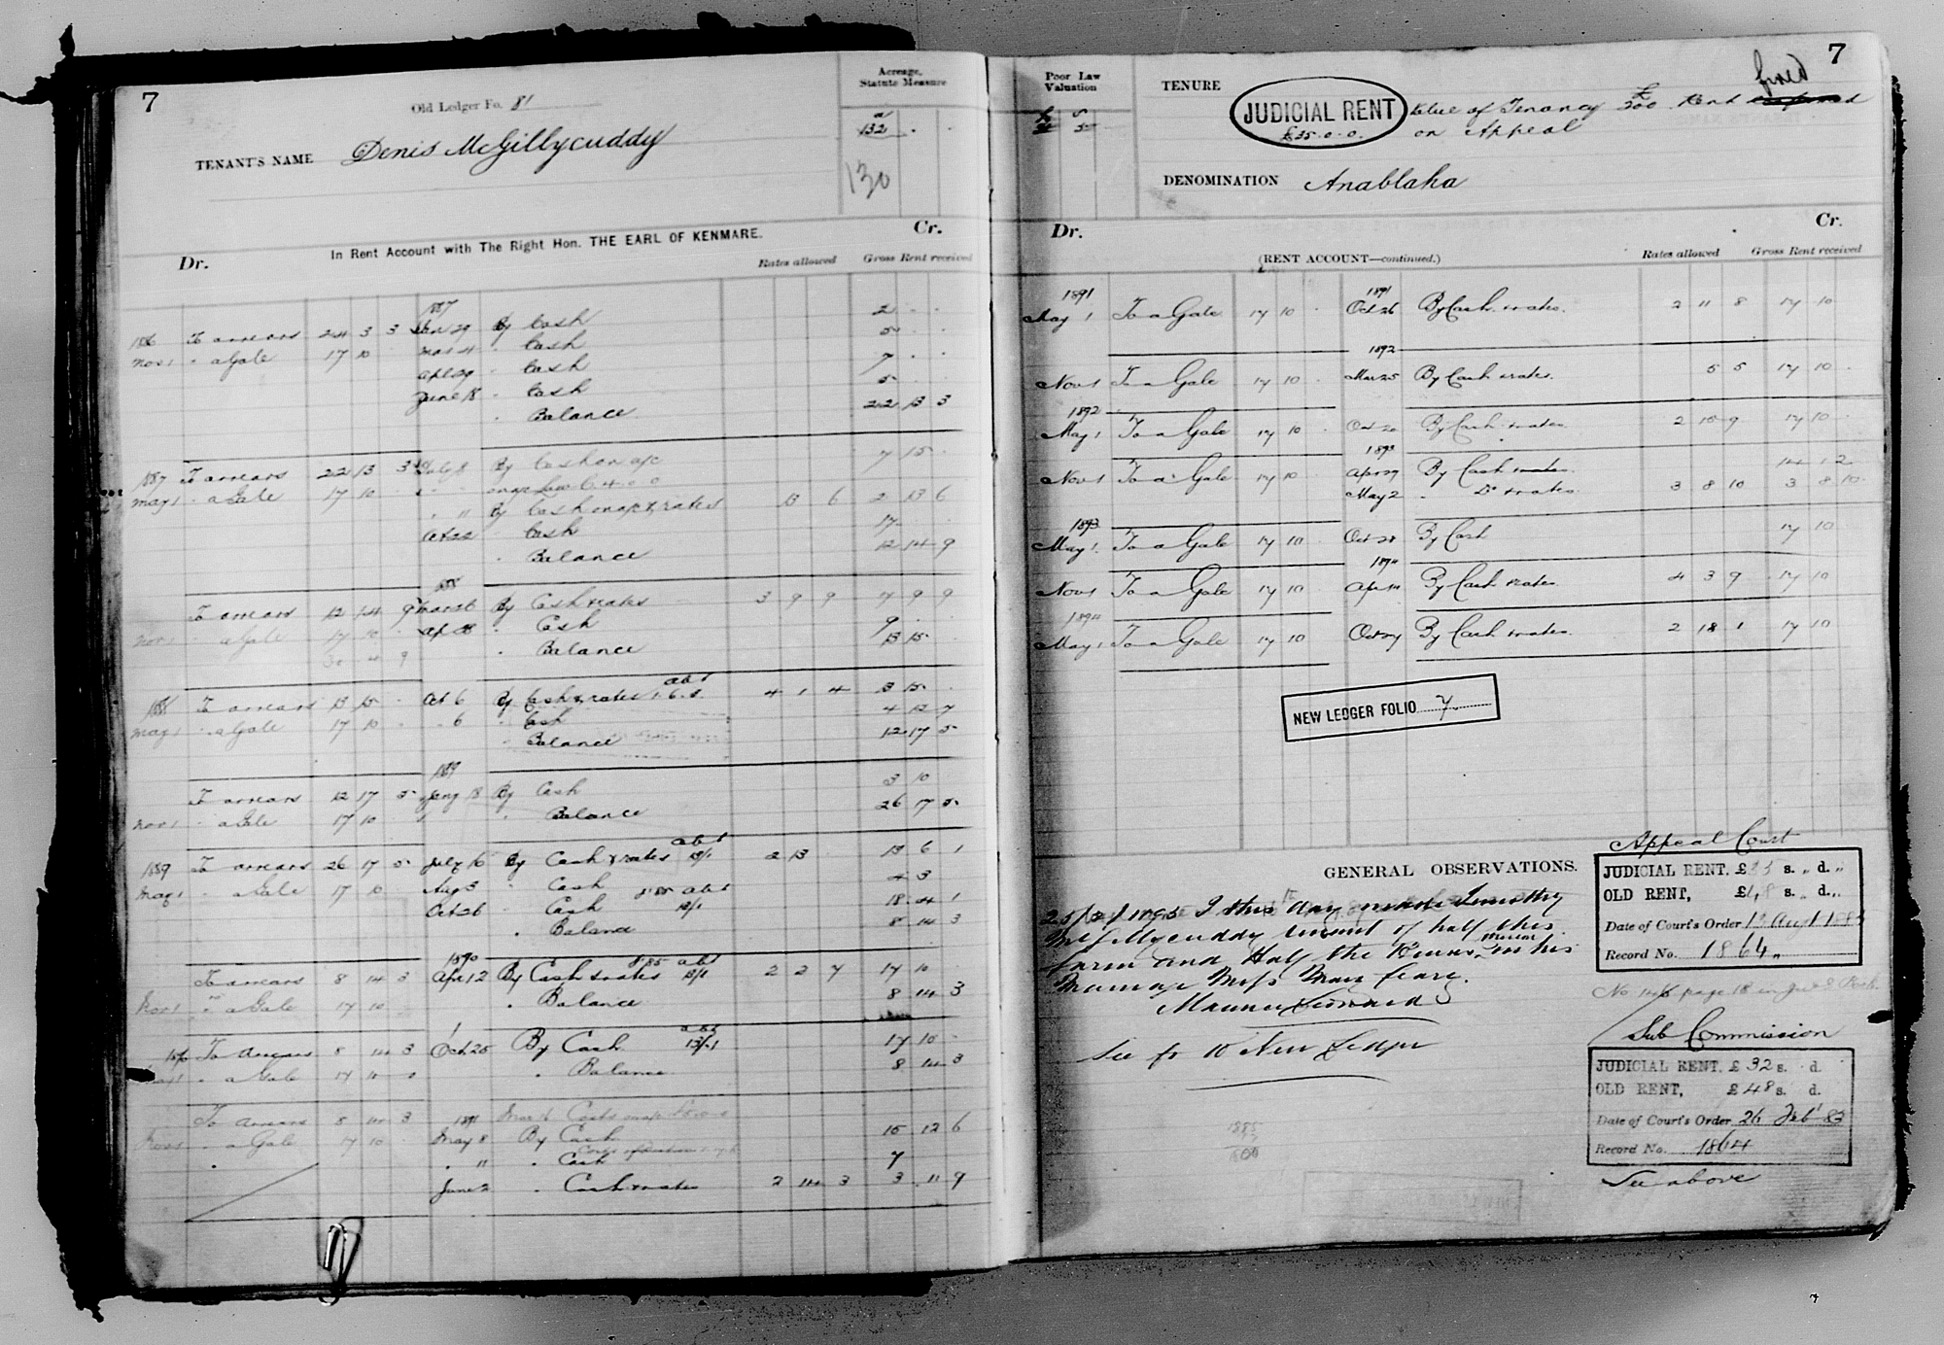 7
Old Ledger Fo. 81
TENANT'S NAME Denis McGillycuddy
Acreage,
Statute Measure
a
132
130
In Rent Account with The Right Hon. THE EARL OF KENMARE.
Dr. Cr.
Rates allowed Gross Rent received
1887
1886 To arrears 24 3 3 Jan 29 By Cash 2 . .
Nov 1 " a Gale 17 10 Mar 4 " Cash 5 . .
Apl 29 " Cash 7 . .
June 18 " Cash 5 . .
" Balance 22 13 3
1887 To arrears 22 13 3 July 8 By Cash on a/c 7 15
May 1 " a Gale 17 10
" 11 By Cash & rates 13 6 2 13 6
Oct 22 " Cash 17
" Balance 12 14 9
1888
To arrears 12 14 9 By Cash & rates 3 9 9 7 9 9
Nov 1 " a Gale 17 10 Ap 28 " Cash 9
30 4 9 " Balance 13 15
abt
1888 To arrears 13 15 Oct 6 By Cash & rates 1.6.8 4 1 4 13 15
May 1 " a Gale 17 10 " 6 " Cash 4 12 7
" Balance 12 17 5
1889
To arrears 12 17 5 18 By Cash 3 10
Nov 1 " a Gale 17 10 " Balance 26 17 5
abt
1889 To arrears 26 17 5 July 16 By Cash & rates 13/1 2 13 13 6 1
May 1 " a Gale 17 10 Aug 3 " Cash 4 3
Oct 26 " Cash abt 13/1 18 4 1
" Balance 8 14 3
1890
To arrears 8 14 3 Apr 12 By Cash & rates abt 13/1 2 2 7 17 10
Nov 1 " a Gale 17 10 " Balance 8 14 3
1890 To arrears 8 14 3 Oct 25 By Cash abt 13/1 17 10
May 1 " a Gale 17 10 " Balance 8 14 3
To arrears 8 14 3 1891
Nov 1 " a Gale 17 10 May 8 By Cash 15 12 6
" 11 " Cash 7
June 2 " Cash & rates 2 14 3 3 11 9
7
Poor Law
Valuation
£ s
TENURE
JUDICIAL RENT
£35.0.0.
Value of Tenancy £200 Rent fixed
on Appeal
DENOMINATION Anablaha
Dr. Cr.
(RENT ACCOUNT—continued.)
Rates allowed Gross Rent received
1891 1891
May 1 To a Gale 17 10 Oct 26 By Cash & rates. 2 11 8 17 10
1892
Nov 1 To a Gale 17 10 Mar 25 By Cash & rates. 5 5 17 10
1892
May 1 To a Gale 17 10 Oct 20 By Cash & rates 2 10 9 17 10
1893
Nov 1 To a Gale 17 10 Apr 29 By Cash & rates 14 1 2
May 2 " Do & rates 3 8 10 3 8 10
1893
May 1 To a Gale 17 10 Oct 28 By Cash 17 10
1894
Nov 1 To a Gale 17 10 Apr 14 By Cash & rates 4 3 9 17 10
1894
May 1 To a Gale 17 10 Oct 27 By Cash & rates. 2 18 1 17 10
NEW LEDGER FOLIO 7
GENERAL OBSERVATIONS.
I this day made Timothy
McGillycuddy tenant of half this
farm and Half the House, on his
Marriage Miss Mary Leary.
Maurice Leonard
See fo 10 New Ledger
1885
Appeal Court
JUDICIAL RENT, £35 s. „ d. „
OLD RENT, £48 s. „ d. „
Date of Court's Order 13 Augt 1883
Record No. 1864
Sub Commission
JUDICIAL RENT, £32 s. d.
OLD RENT, £48 s. d.
Date of Court's Order 26 Feb 83
Record No. 1864
See above